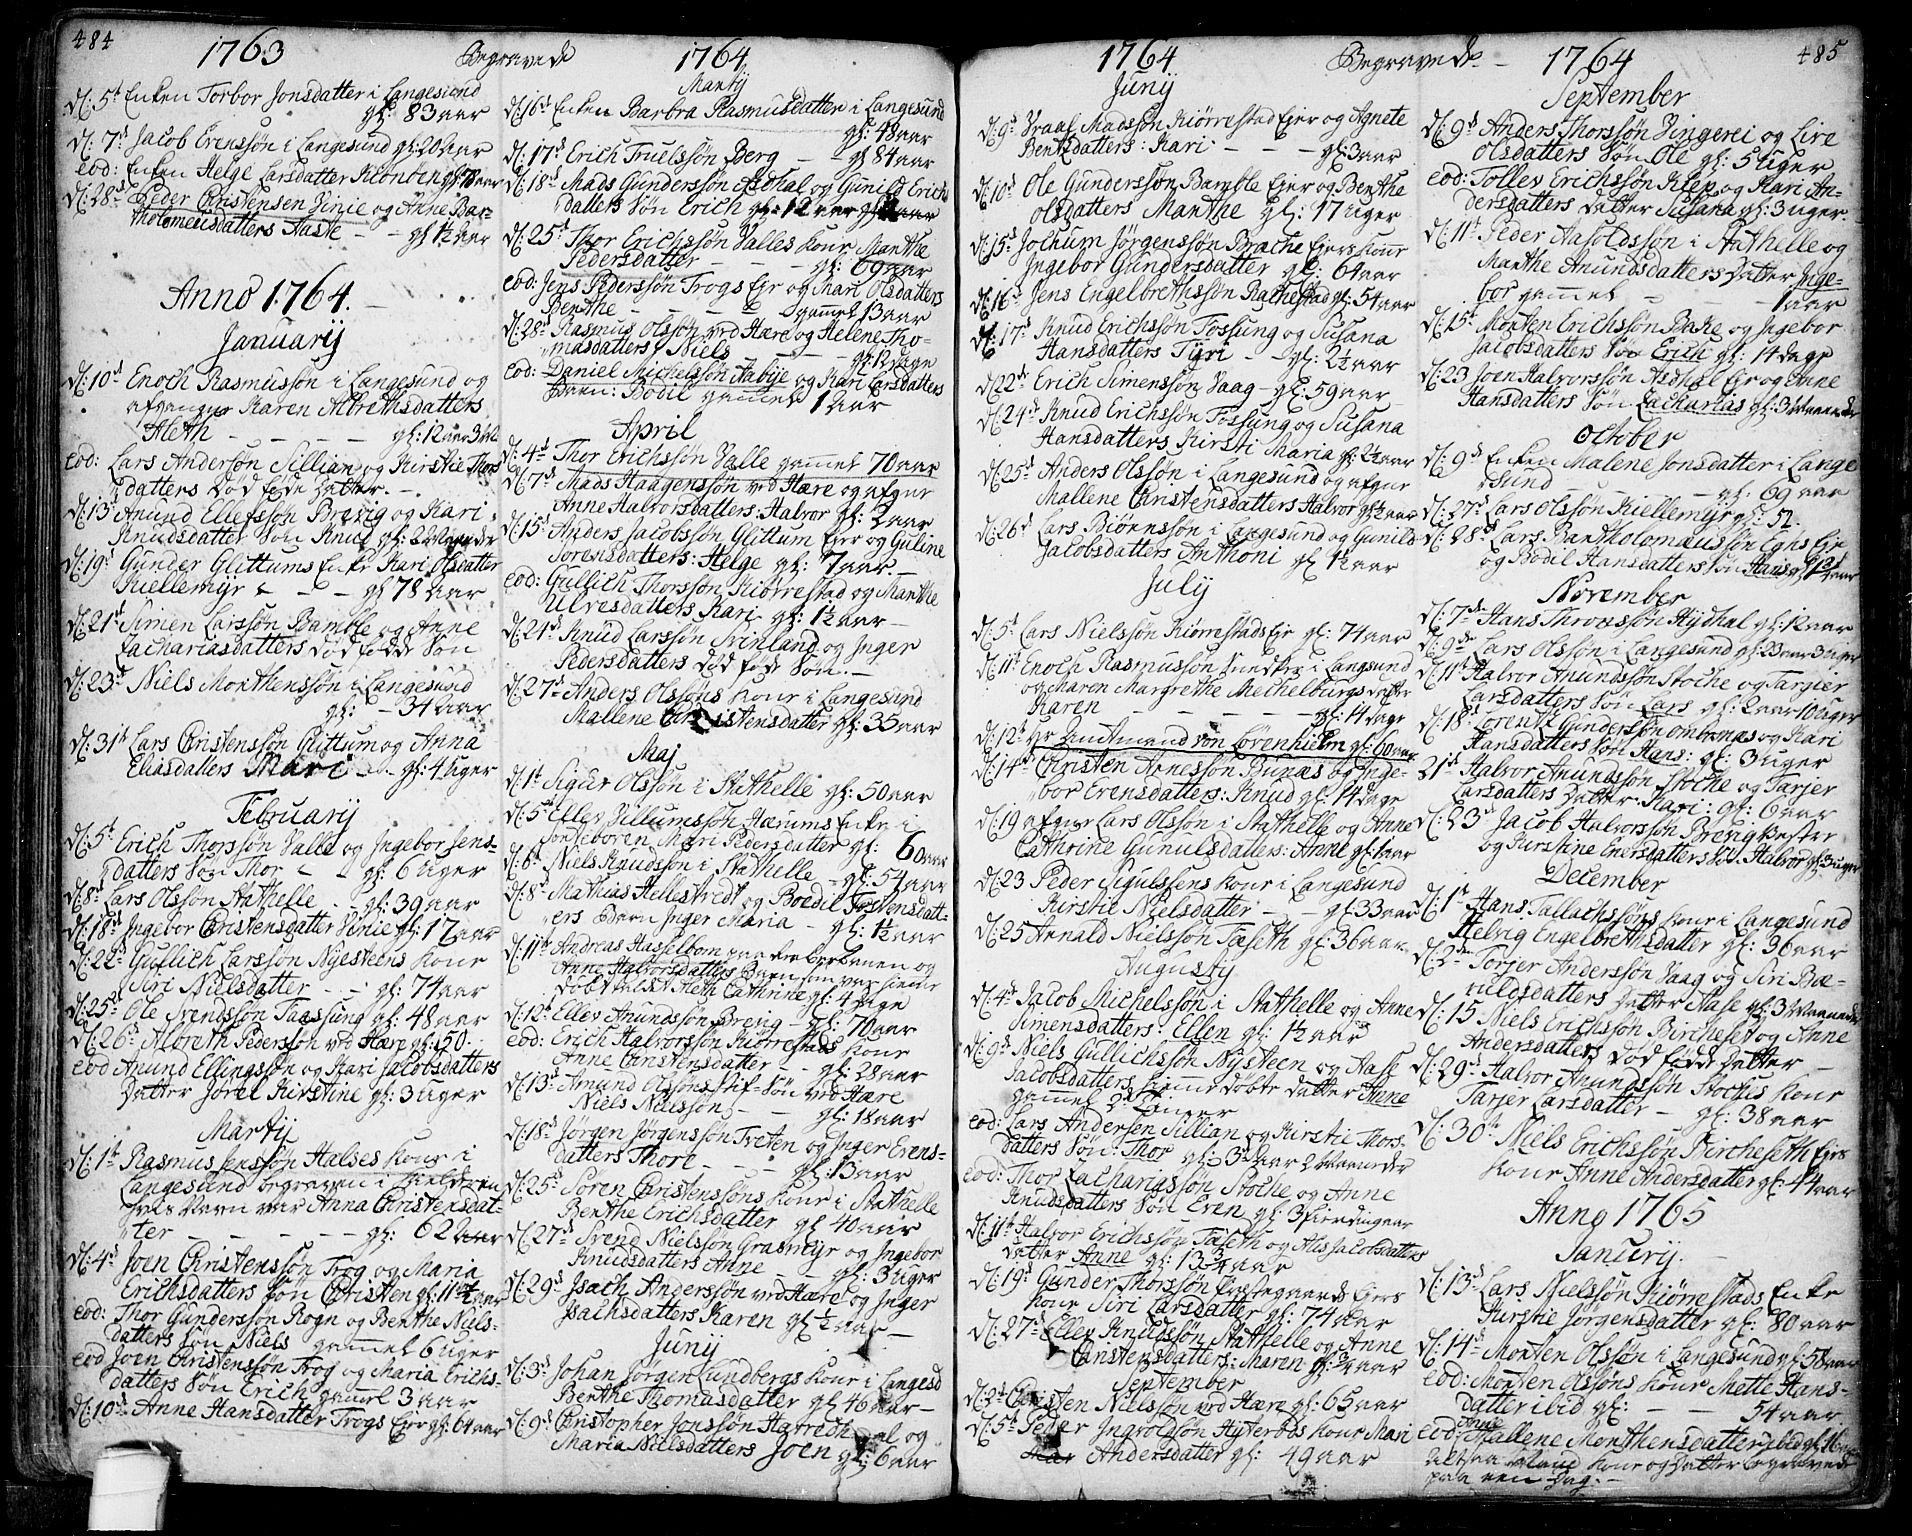 484
1763 Begravede 1764
d: 5t Enken Torbor Jonsdatter i Langesund
gl: 83 aar
d: 7d Jacob Evensøn i Langesund gl: 20 aar
eod: Enken Helge Larsdatter Klonberg gl 78 aar
d: 28d Peder Christensen Vinie og Anne Bar-
tholomeusdatters Aase - - gl 1½ aar
Anno 1764.
Januarij
d: 10d Enoch Rasmussøn i Langesund og
afgangne Karen Albrethsdatters
Aleth - - - - gl: 12 aar 3 M
eod: Lars Andersøn Sillian og Kirstie Thors
datters død føde datter. -
d: 13 Anund Ellefssøn Brevig og Kari
Knudsdatter Søn Knud gl: 2 Maaneder
d: 19d Gunder Glittums Enke Kari Olsdatter
Kiellemyr - - - gl 78 aar
d: 21d Simen Larssøn Bamble og Anne
Zachariasdatters død fødde Søn
d: 23d Niels Monthenssøn i Langesund
gl: - 34 aar
d: 31t Lars Christenssøn Glittum og Anna
Eliasdatters Mari - gl: 4 uger
Februarij
d: 5t Erich Thorssøn Valle og Ingebor Jens-
datters Søn Thor - - gl: 6 uger
d: 8d Lars Olssøn Stathelle - gl: 39 aar
d: 18d Ingebor Christensdatter Vinie gl: 17 aar
d: 22d Gullich Larssøn Nysteens Kone
Siri Nielsdatter - - gl: 74 aar
d: 25d Ole Svendssøn Taassung gl: 48 aar
d: 26d Albreth Pederssøn ved Hære gl: 50.
eod Anund Ellingssøn og Kari Jacobsdatters
Datter Jørel Kirstine gl: 3 uger
Martij
d: 1t Rasmus Jenssøn Halses Kone i
Langesund begraven i Kielderen
hvis Navn var Anna Christensdat-
ter - - - - - gl: 62 aar
d: 4d Joen Christenssøn Trog og Maria
Erichsdatters Søn Christen gl: 11½ aar
eod: Thor Gunderssøn Rogn og Benthe Niels-
datters Søn Niels gammel 6 uger
eod Joen Christenssøn Trog og Maria Erichs-
datters Søn Erich gamel 3 aar
d: 10d Anne Hansdatter Trogs Ejer gl: 64 aar
Martij
d: 16d Enken Barbra Rasmusdatter i Langesund
gl: 48 aar
d: 17d Erich Truelssøn Berg - - gl 84 aar
d: 18d Mads Gunderssøn Asdhal og Gunild Erichs
datters Søn Erich gl: 12 aar
d: 25d Thor Erichssøn Valles Kone Manthe
Pedersdatter - - - gl: 69 aar
eod: Jens Pederssøn Trogs Ejr og Mari Olsdatters
Benthe - - - - gammel 13 aar
d: 28d Rasmus Olssøn ved Hære og Helene Tho-
masdatters Niels - - - gl: 12 dage
eod: Daniel Michelssøn Aabye og Kari Larsdatters
Barn: Bodil gammel 1 aar
April
d: 4d Thor Erichssøn Valle gammel 70 aar
d: 7d Mads Haagenssøn ved Hære og afgne
Anne Halvorsdatters: Halvor gl: 2 aar
d: 15d Anders Jacobssøn Glittum Ejer og Guline
Sorensdatters: Helge gl: 7 aar.-
eod: Gullich Thorssøn Kiørrestad og Manthe
Ulvesdatters Kari gl: 1½ aar -
d: 21d Knud Larssøn Svinland og Inger
Pedersdatters død føde Søn. -
d: 27d Anders Olssøns Kone i Langesund
Mallene Christensdatter gl: 35 aar
Maj
d: 1t Sigur Olssøn i Stathelle gl: 50 aar
d: 5t Ellev Villumssøn Hærums Enke i
Mari Pedersdatter gl: 60 aar
d: 6t Niels Knudssøn i Stathelle - gl: 54 aar
d: 8d Mathias Hellestvedt og Boedil Torstensdatt-
ers Barn Inger Maria - gl: 1½ aar
d: 11t Andreas Hasselbom paa og
Anne Halvorsdatters Barn som var hieme
døbt kaldt Aleth Cathrine gl: 4 dage
d: 12t Ellev Anundssøn Brevig - gl: 70 aar
eod: Erich Halvorssøn Kiørrestads Kone
Anne Christensdatter - - gl: 28 aar
d: 13d Amund Olssøns Stif-Søn ved Hære
Niels Nielssøn - - gl: 18 aar
d: 18d Jørgen Jørgenssøn Tveten og Inger Evens-
datters Thore - - - gl: 13 aar
d: 25d Soren Christenssøns Kone i Stathelle
Benthe Erichsdatter gl 40 aar
d: 27d Svend Nielssøn Grasmyr og Ingebor
Knudsdatters Anne - - gl: 3 uger
d: 29d Isach Anderssøn ved Hære og Inger
Isachsdatters Karen gl ½ aar -
Junij
d: 3d Johan Jørgen Lundbergs Kone i Langesd
Benthe Thomasdatter gl 46 aar -
d: 9d Christopher Jonssøn Havredhal og
Maria Nielsdatters Joen gl: 6 aar
1764 Begravede - 1764 485
Junij
d: 9d Vraal Madssøn Kiørrestad Ejer og Agnete
Bentsdatters: Kari - - - gl: 3 aar
d: 10d Ole Gunderssøn Bamble Ejer og Benthe
Olsdatters Manthe gl: 17 uger
d: 15d Jochum Jørgenssøn Brache Ejers Kone
Ingebor Gundersdatter gl: 64 aar
d: 16d Jens Engelbrethssøn Rachestad gl: 54 aar
d: 17d Knud Erichssøn Fossung og Susana
Hansdatters Tyri - gl: 2½ aar
d: 22d Erich Simenssøn Vaag - gl: 59 aar
d: 24d Knud Erichssøn Fossung og Susana
Hansdatters Kirsti Maria gl: 2½ aar
d: 25d Anders Olssøn i Langesund og afgne
Mallene Christensdatters Halvor gl ½ aar
d: 26d Lars Biørnssøn i Langesund og Gunild
Jacobsdatters Anthoni gl 1½ aar
July
d: 5t Lars Nielssøn Kiørrestads Ejr gl: 74 aar
d: 11t Enoch Rasmussøn i Langsund
og Maren Margrethe Mechelburgs datter
Karen - - - - gl: 14 dage
d: 12t Hr Lautmand von Løvenhielm gl: 60 aar
d: 14d Christen Arnessøn Bunæs og Inge-
bor Evensdatters: Knud gl: 14 dage
d: 19 afgne Lars Olssøn i Stathelle og Anne
Cathrine Gunulsdatters: Anne gl: 1 aar
d: 23 Peder Sigulssens Kone i Langesund
Kirstie Nielsdatter - - gl: 33 aar
d: 25 Arnald Nielssøn Fæseth gl: 36 aar
Augustij
d: 4d Jacob Michelssøn i Stathelle og Anne
Simensdatters: Ellen gl: 1½ aar
d: 9d Niels Gullichssøn Nysteen og Aase
Jacobsdatters hieme døbte datter Anne
gammel 2
eod: Lars Andersen Sillian og Kirstie Thors-
datters Søn: Thor gl: 3 aar 2 Maaneder
eod: Thor Zachariassøn Stoche og Anne
Knudsdatters Søn Even gl: 3 fierdingaar
d: 11t Halvor Erichssøn Fæseth og Alis Jacobsdatters
datter Anne gl: 13¾ aar
d: 19d Gunder Thorssøn Ejers
Kone Siri Larsdatter gl: 74 aar
d: 27d Ellev Knudssøn Stathelle og Anne
Christensdatters: Maren gl: ¾ aar
September
d: 2d Christen Nielssøn ved Hære gl: 65 aar
d: 5t Peder Ingvoldsøn Hyterøds Kone Mari
Andersdatter gl: 49 aar
September
d: 9d Anders Thorssøn Vingerei og Live
Olsdatters Søn Ole gl: 5 uger
eod: Tollev Erichssøn Klep og Kari An-
dersdatters datter Susana gl: 3 uger
d: 11t Peder Aasoldssøn i Stathelle og
Manthe Anundsdatters Datter Inge-
bor gammel - - - 1 aar
d: 15t Monten Erichssøn Bake og Ingebor
Jacobsdatters Søn Erich gl: 14 dage
d: 23 Joen Halvorssøn Asdhal Ejr og Anne
Hansdatters Søn Zacharias gl: 3 Maaneder
October
d: 9d Enken Malene Jonsdatter i Lange
sund - - - gl: 69 aar
d: 27d Lars Olssøn Kiellemyr gl: 52.
d: 28d Lars Bantholomæussøn Eghs Ejr
og Bodil Hansdatters Søn Hans gl 1¾ aar
November
d: 7de Hans Throndsøn Hydhal gl: 12 aar
d: 9de Lars Olssøn i Langesund gl: 23 aar 3 uger
d: 11t Halvor Anundssøn Stoche og Targier
Larsdatters Søn Lars gl: 2 aar 10 uger
d: 18d Lorentz Gunderssøn Ombrnæs og Kari
Hansdatters Søn Hans: gl: 3 uger
21d Halvor Anundssøn Stoche og Tarjer
Larsdatters Datter: Kari: gl: 6 aar
d: 23d Jacob Halvorssøn Brevig Vester
og Kirstine Enersdatters Søn: Halvor gl: 3 uger
December
d: 1t Hans Tallachssøns Kone i Langesund
Helvig Engelbrethsdatter gl: 36 aar
d: 2de Torjer Anderssøn Vaag og Siri Bæ-
vuldsdatters Datter Aase gl: 3 Maaneder
d: 15 Niels Erichssøn Bircheset og Anne
Andersdatters død fødde Datter -
d: 29d Halvor Anundssøn Stochs Kone
Tarjer Larsdatter - gl: 38 aar
d: 30te Niels Erichssøn Bircheseth Ejrs
Kone Anne Andersdatter gl: 44 aar
Anno 1765
Januarij.
d: 13d Lars Nielssøn Kiørrestads Enke
Kirstie Jørgensdatter gl: 80 aar
d: 14d Monten Olssøn i Langesund gl: 58 aar
eod: Monten Olssøns Kone Mette Hans-
datter ibid gl: - - 54 aar
eod: Anne Mallene Monthensdatter ibid gl: 16
altsaa Mand Kone og Datter begravede
paa een Dag. -